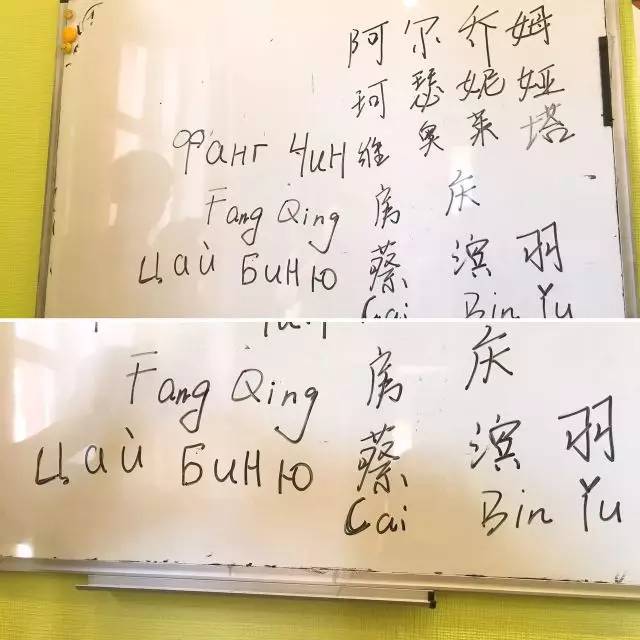 阿 尔 乔 姆
珂 瑟 妮 娅
Фанг Чин 维 奥 莱 塔
Fang Qing 房 庆
Цай Биню 蔡 滨 羽
Cai Bin Yu
Fang Qing 房 庆
Цай Биню 蔡 滨 羽
Cai Bin Yu